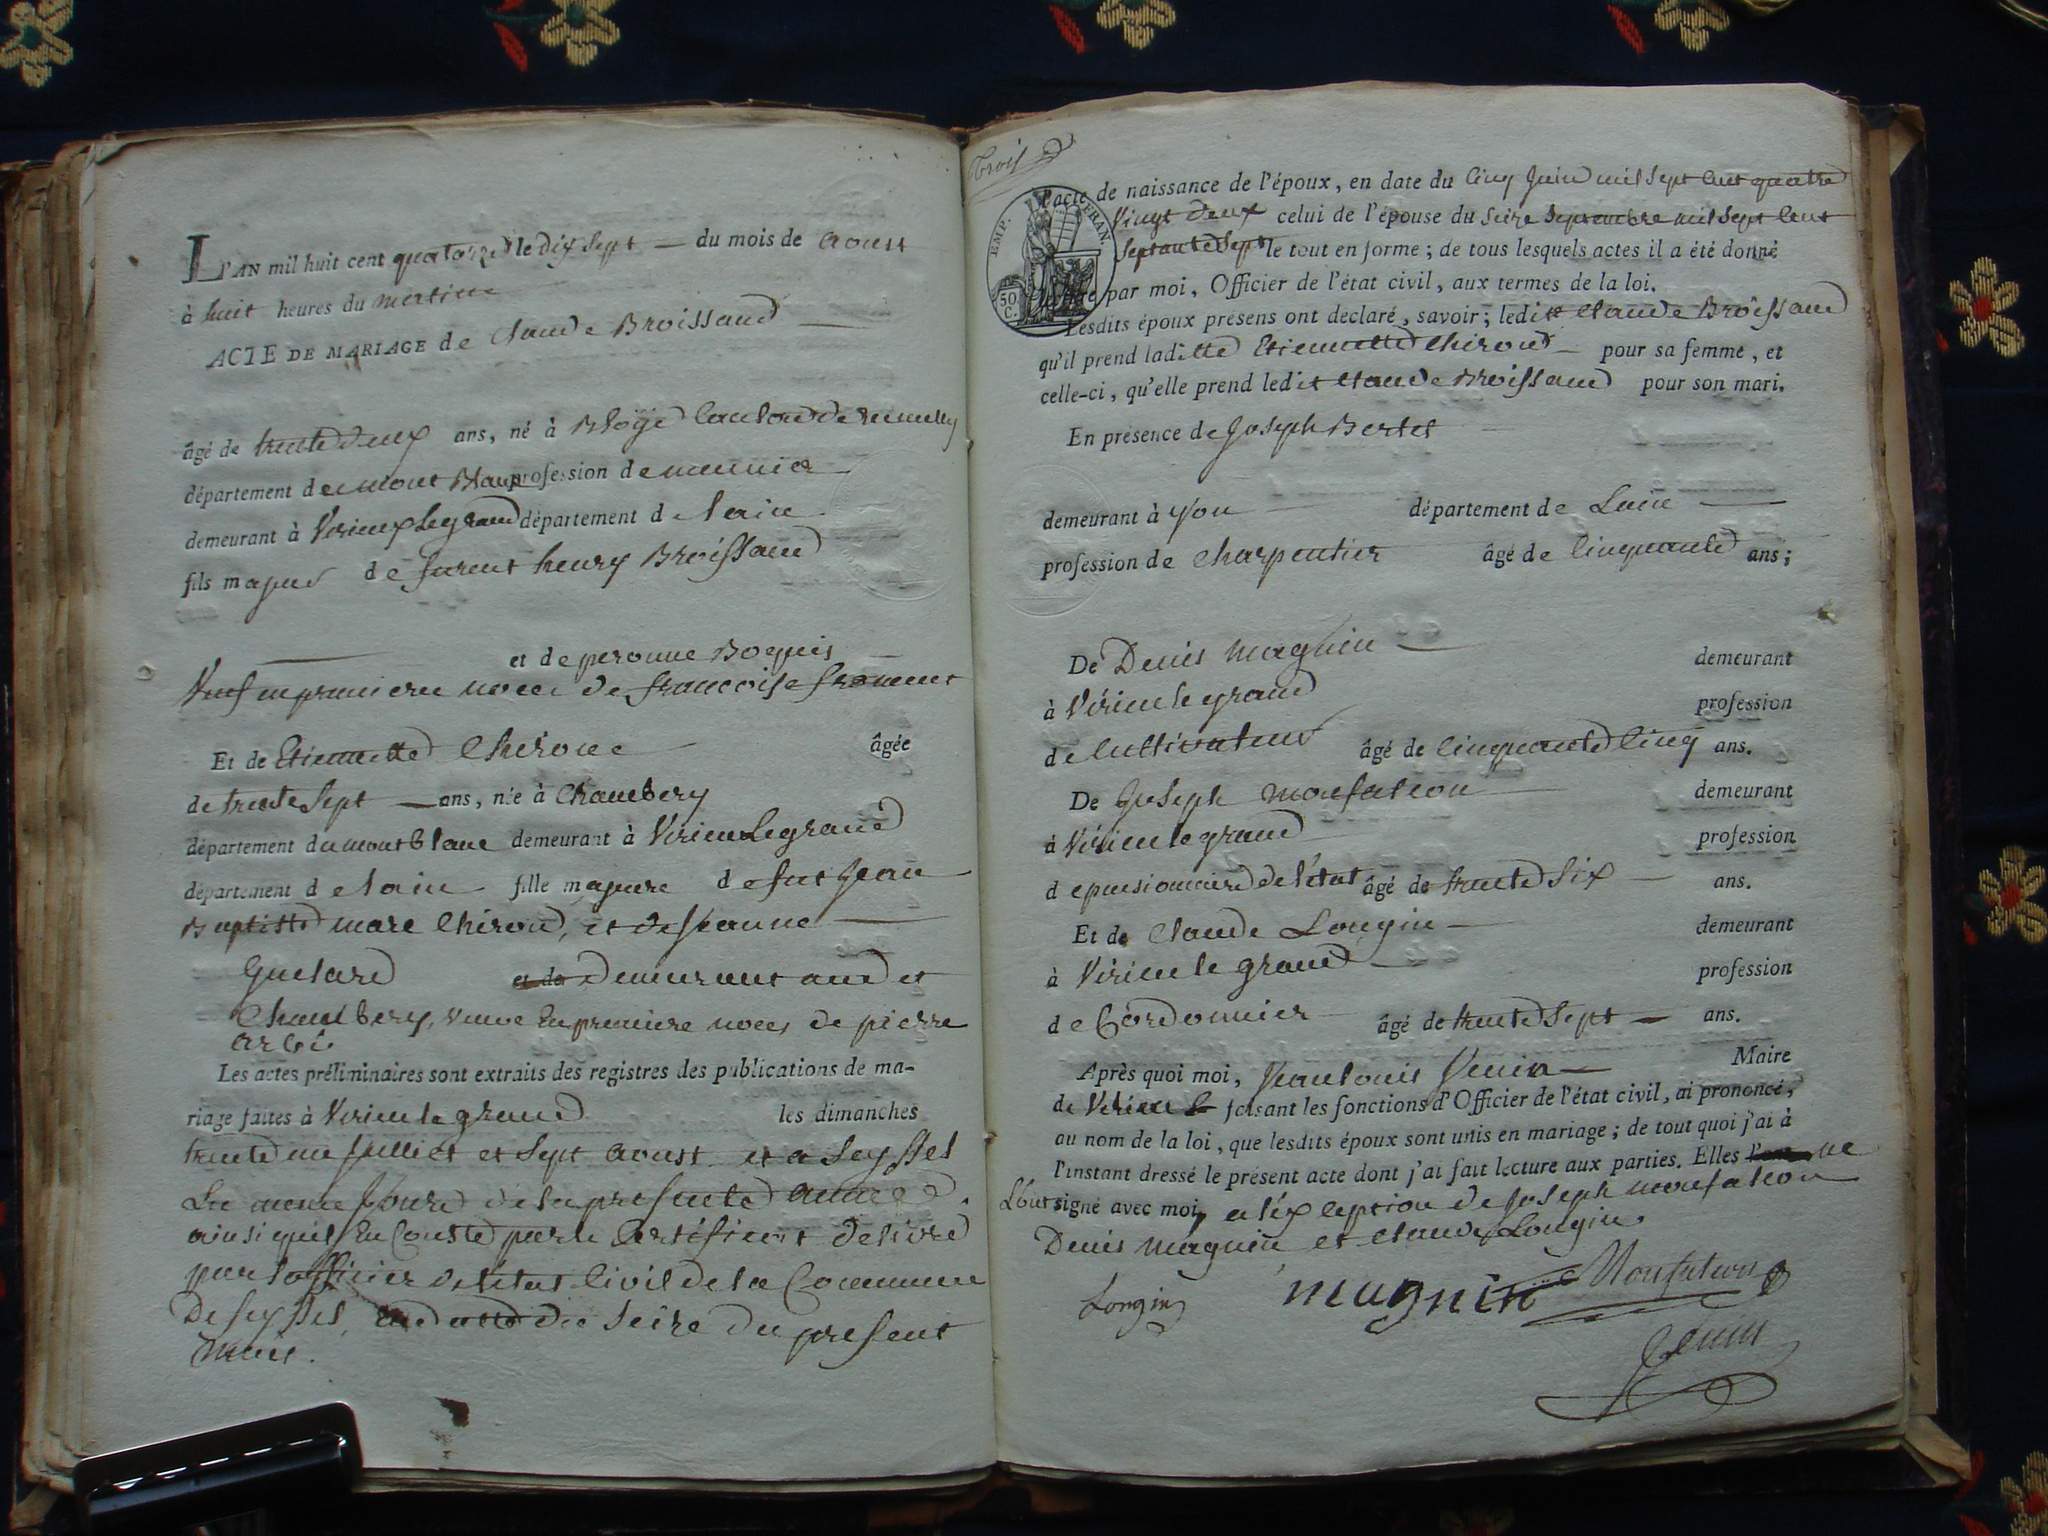 L'AN mil huit cent quatorze le dix sept du mois de aoust
à huit heures du matin
ACTE DE MARIAGE de Claude Broissand
âgé de trente deux ans, né à Bloÿe Canton de rumilly
département du mont Blanc profession de meunier
demeurant à Virieux le grand département de lain
fils majeur de furent henry Broissand
et de peronne Boquis
Veuf en premiere noces de francoise froment
Et de Etiennette Chiron âgée
de trente sept ans, née à Chambery
département du mont Blanc demeurant à Virieu le grand
département de lain fille majeure de fut Jean
Baptiste marc Chiron, et de Jeanne
Guelard et de Demeurant audit
Chambery, veuve En premiere noces de pierre
Les actes préliminaires sont extraits des registres des publications de ma-
riage faites à Virieu le grand les dimanches
trente un Julliet et Sept aoust et a Seyssel
Le meme Jour de la presente année
ainsi quil En Conste par le Certificat Delivré
par l'officier de l'état Civil de la Commune
De Seyssel, En datte du Seize du present
mois.
Trois
l'acte de naissance de l'époux, en date du Cinq Juin mil sept cent quatre
EMP. FRAN.
Vingt deux celui de l'épouse du Seize Septembre mil sept Cent
Septante Sept le tout en forme ; de tous lesquels actes il a été donné
50 C.
lecture par moi, Officier de l'état civil, aux termes de la loi.
Lesdits époux présens ont declaré, savoir ; ledit Claude Broissand
qu'il prend laditte Etiennette Chiron pour sa femme, et
celle-ci, qu'elle prend ledit Claude Broissand pour son mari.
En présence de Joseph Bertet
demeurant à yon département de Lain
profession de Charpentier âgé de Cinquante ans ;
De Denis Magnin demeurant
à Virieu le grand profession
de Cultivateur âgé de Cinquante Cinq ans.
De Joseph Monfalcon demeurant
à Virieu le grand profession
de pensionnaire de l'état âgé de trente Six ans.
Et de Claude Longin demeurant
à Virieu le grand profession
de Cordonnier âgé de trente Sept ans.
Après quoi moi, Jean Louis Jenin Maire
de Virieu le faisant les fonctions d'Officier de l'état civil, ai prononcé,
au nom de la loi, que lesdits époux sont unis en mariage ; de tout quoi j'ai à
l'instant dressé le présent acte dont j'ai fait lecture aux parties. Elles l'ont ne
L'ont signé avec moi, a l'exception de Joseph Monfalcon
Denis Magnin et Claude Longin.
Longin Magnin Monfalcon
Jenin